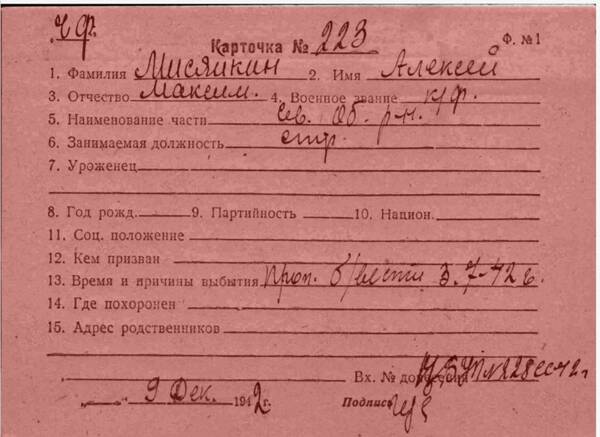 ЧФ.
Карточка № 223 Ф. №1
1. Фамилия Мисяйкин 2. Имя Алексей
3. Отчество Максим. 4. Военное звание к/ф.
5. Наименование части Сев. Об. р-н.
6. Занимаемая должность стр.
7. Уроженец
8. Год рожд. 9. Партийность 10. Национ.
11. Соц. положение
12. Кем призван
13. Время и причины выбытия проп. б/вести 3.7-42 г.
14. Где похоронен
15. Адрес родственников
Вх. № донесения
9 Дек. 1942г. Подпись